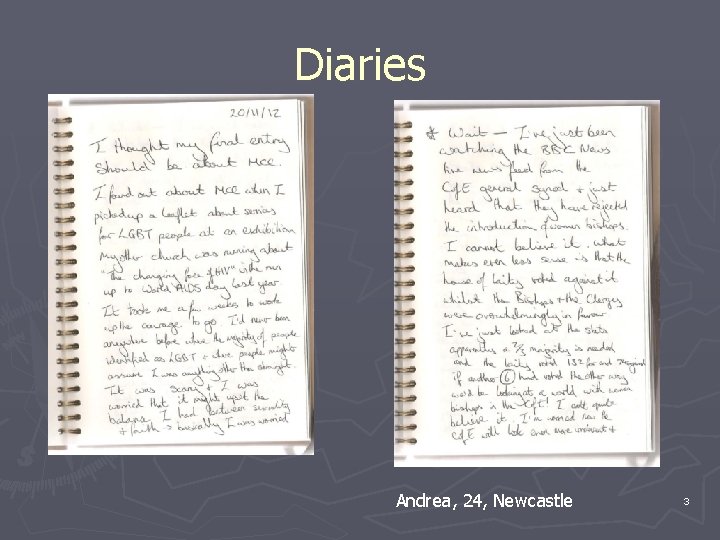 Diaries
20/11/12
I thought my final entry
should be about MCC.
I found out about MCC when I
picked up a leaflet about services
for LGBT people at an exhibition
My other church was running about
"The changing face of HIV" in the run
up to World AIDS day last year.
It took me a few weeks to work
up the courage to go. I'd never been
anywhere before where the majority of people
identified as LGBT + where people might
assume I was anything other than straight.
It was scary + I was
worried that it might upset the
balance I had between sexuality
+ faith - basically I was worried
* Wait - I've just been
watching the BBC News
live news feed from the
CofE general synod + just
heard that they have rejected
the introduction of women bishops.
I cannot believe it, what
makes even less sense is that the
house of laity voted against it
whilst the Bishops + the Clergy
were overwhelmingly in favour
I've just looked at the stats
apparently a 2/3 majority is needed
and the laity voted 132 for and
if another 6 had voted the other way
would be looking at a world with women
bishops in the CofE! I can't quite
believe it. I'm worried now the
CofE will look even more irrelevant +
Andrea, 24, Newcastle
3